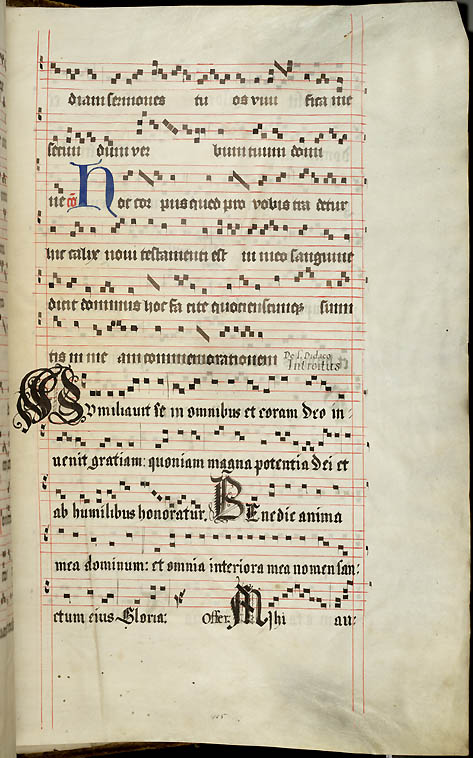 diam sermones tu os vivi fica me
secun dum ver bum tuum domi
ne cō Hoc cor pus quod pro vobis tra detur
hic calix novi testamenti est in meo sanguine
dicit dominus hoc fa cite quotienscumqꝫ sumi
tis in me am commemorationem De S. Didaco
Introitus
HVmiliavit se in omnibus et coram Deo in-
uenit gratiam: quoniam magna potentia Dei et
ab humilibus honoratur. BEnedic anima
mea dominum: et omnia interiora mea nomen san:
ctum eius Gloria: Offer. Mihi au: